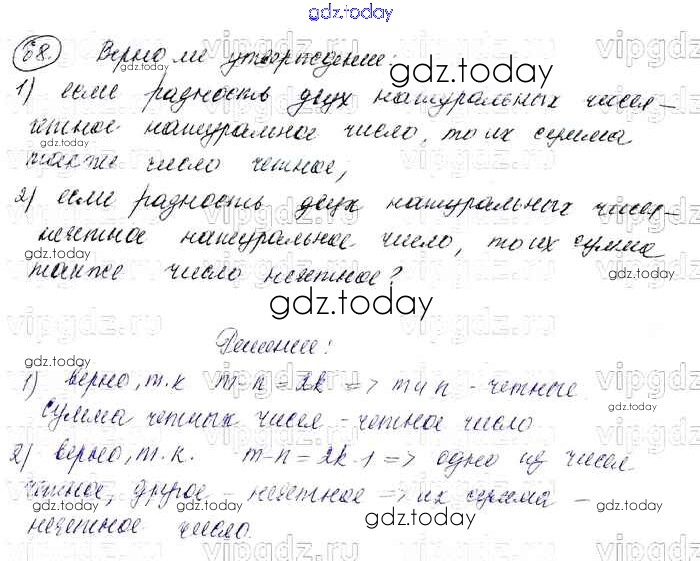 gdz.today
68. Верно ли утверждение:
gdz.today
1) если разность двух натуральных чисел –
четное натуральное число, то их сумма
также число четное;
gdz.today
2) если разность двух натуральных чисел –
нечетное натуральное число, то их сумма
также число нечетное?
gdz.today
Решение:
gdz.today
1) верно, т.к m-n=2k => m и n - четные
gdz.today
сумма четных чисел – четное число
gdz.today
2) верно, т.к. m-n=2k-1 => одно из чисел
gdz.today
четное, другое – нечетное => их сумма –
gdz.today
нечетное число.
gdz.today
vipgdz.ru